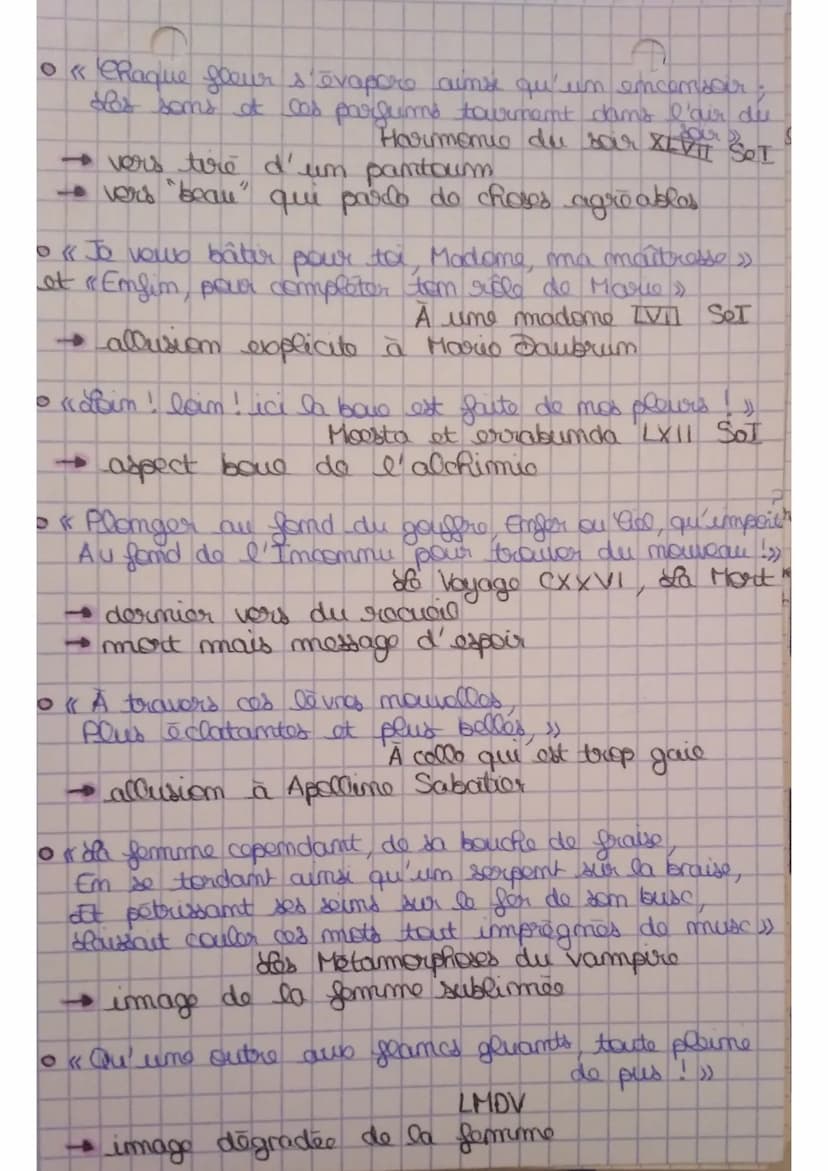 « Chaque fleur s'évapore ainsi qu'un encensoir ;
Les sons et les parfums tournent dans l'air du
soir »
Harmonie du soir XLVII SeI
→ vers tiré d'un pantoum
→ vers "beau" qui parle de choses agréables
« Je veux bâtir pour toi, Madone, ma maîtresse »
et « Enfin, pour compléter ton rôle de Marie »
À une madone LVII SeI
→ allusion explicite à Marie Daubrun
« Loin ! loin ! ici la boue est faite de nos pleurs ! »
Moesta et errabunda LXII SeI
→ aspect boue de l'alchimie
« Plonger au fond du gouffre, Enfer ou Ciel, qu'importe ?
Au fond de l'Inconnu pour trouver du nouveau ! »
Le Voyage CXXVI, La Mort
→ dernier vers du recueil
→ mort mais message d'espoir
« À travers ces lèvres nouvelles,
Plus éclatantes et plus belles, »
À celle qui est trop gaie
→ allusion à Apolline Sabatier
« La femme cependant, de sa bouche de fraise,
En se tordant ainsi qu'un serpent sur la braise,
Et pétrissant ses seins sur le fer de son busc,
Laissait couler ces mots tout imprégnés de musc »
Les Métamorphoses du vampire
→ image de la femme sublimée
« Qu'une outre aux flancs gluants, toute pleine
de pus ! »
LMDV
→ image dégradée de la femme